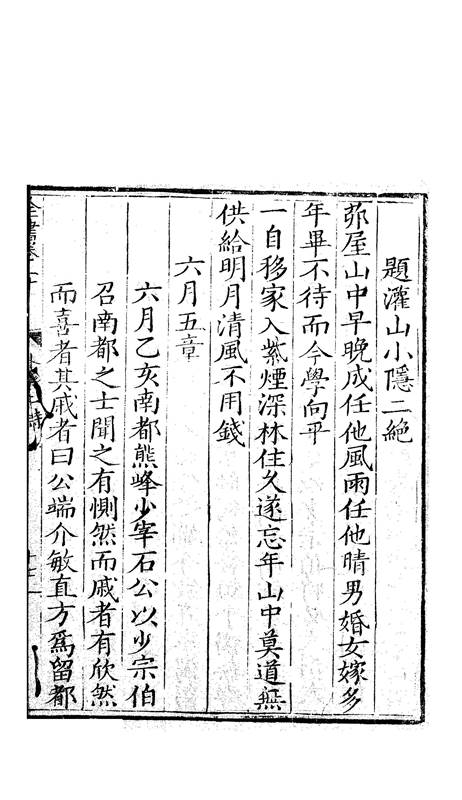 題灌山小隱二絶
茆屋山中早晚成任他風雨任他晴男婚女嫁多
年畢不待而今學向平
一自移家入紫煙深林住久遂忘年山中莫道無
供給明月清風不用錢
六月五章
六月乙亥南都熊峰少宰石公以少宗伯
召南都之士聞之有惻然而戚者有欣然
而喜者其戚者曰公端介敏直方爲留都